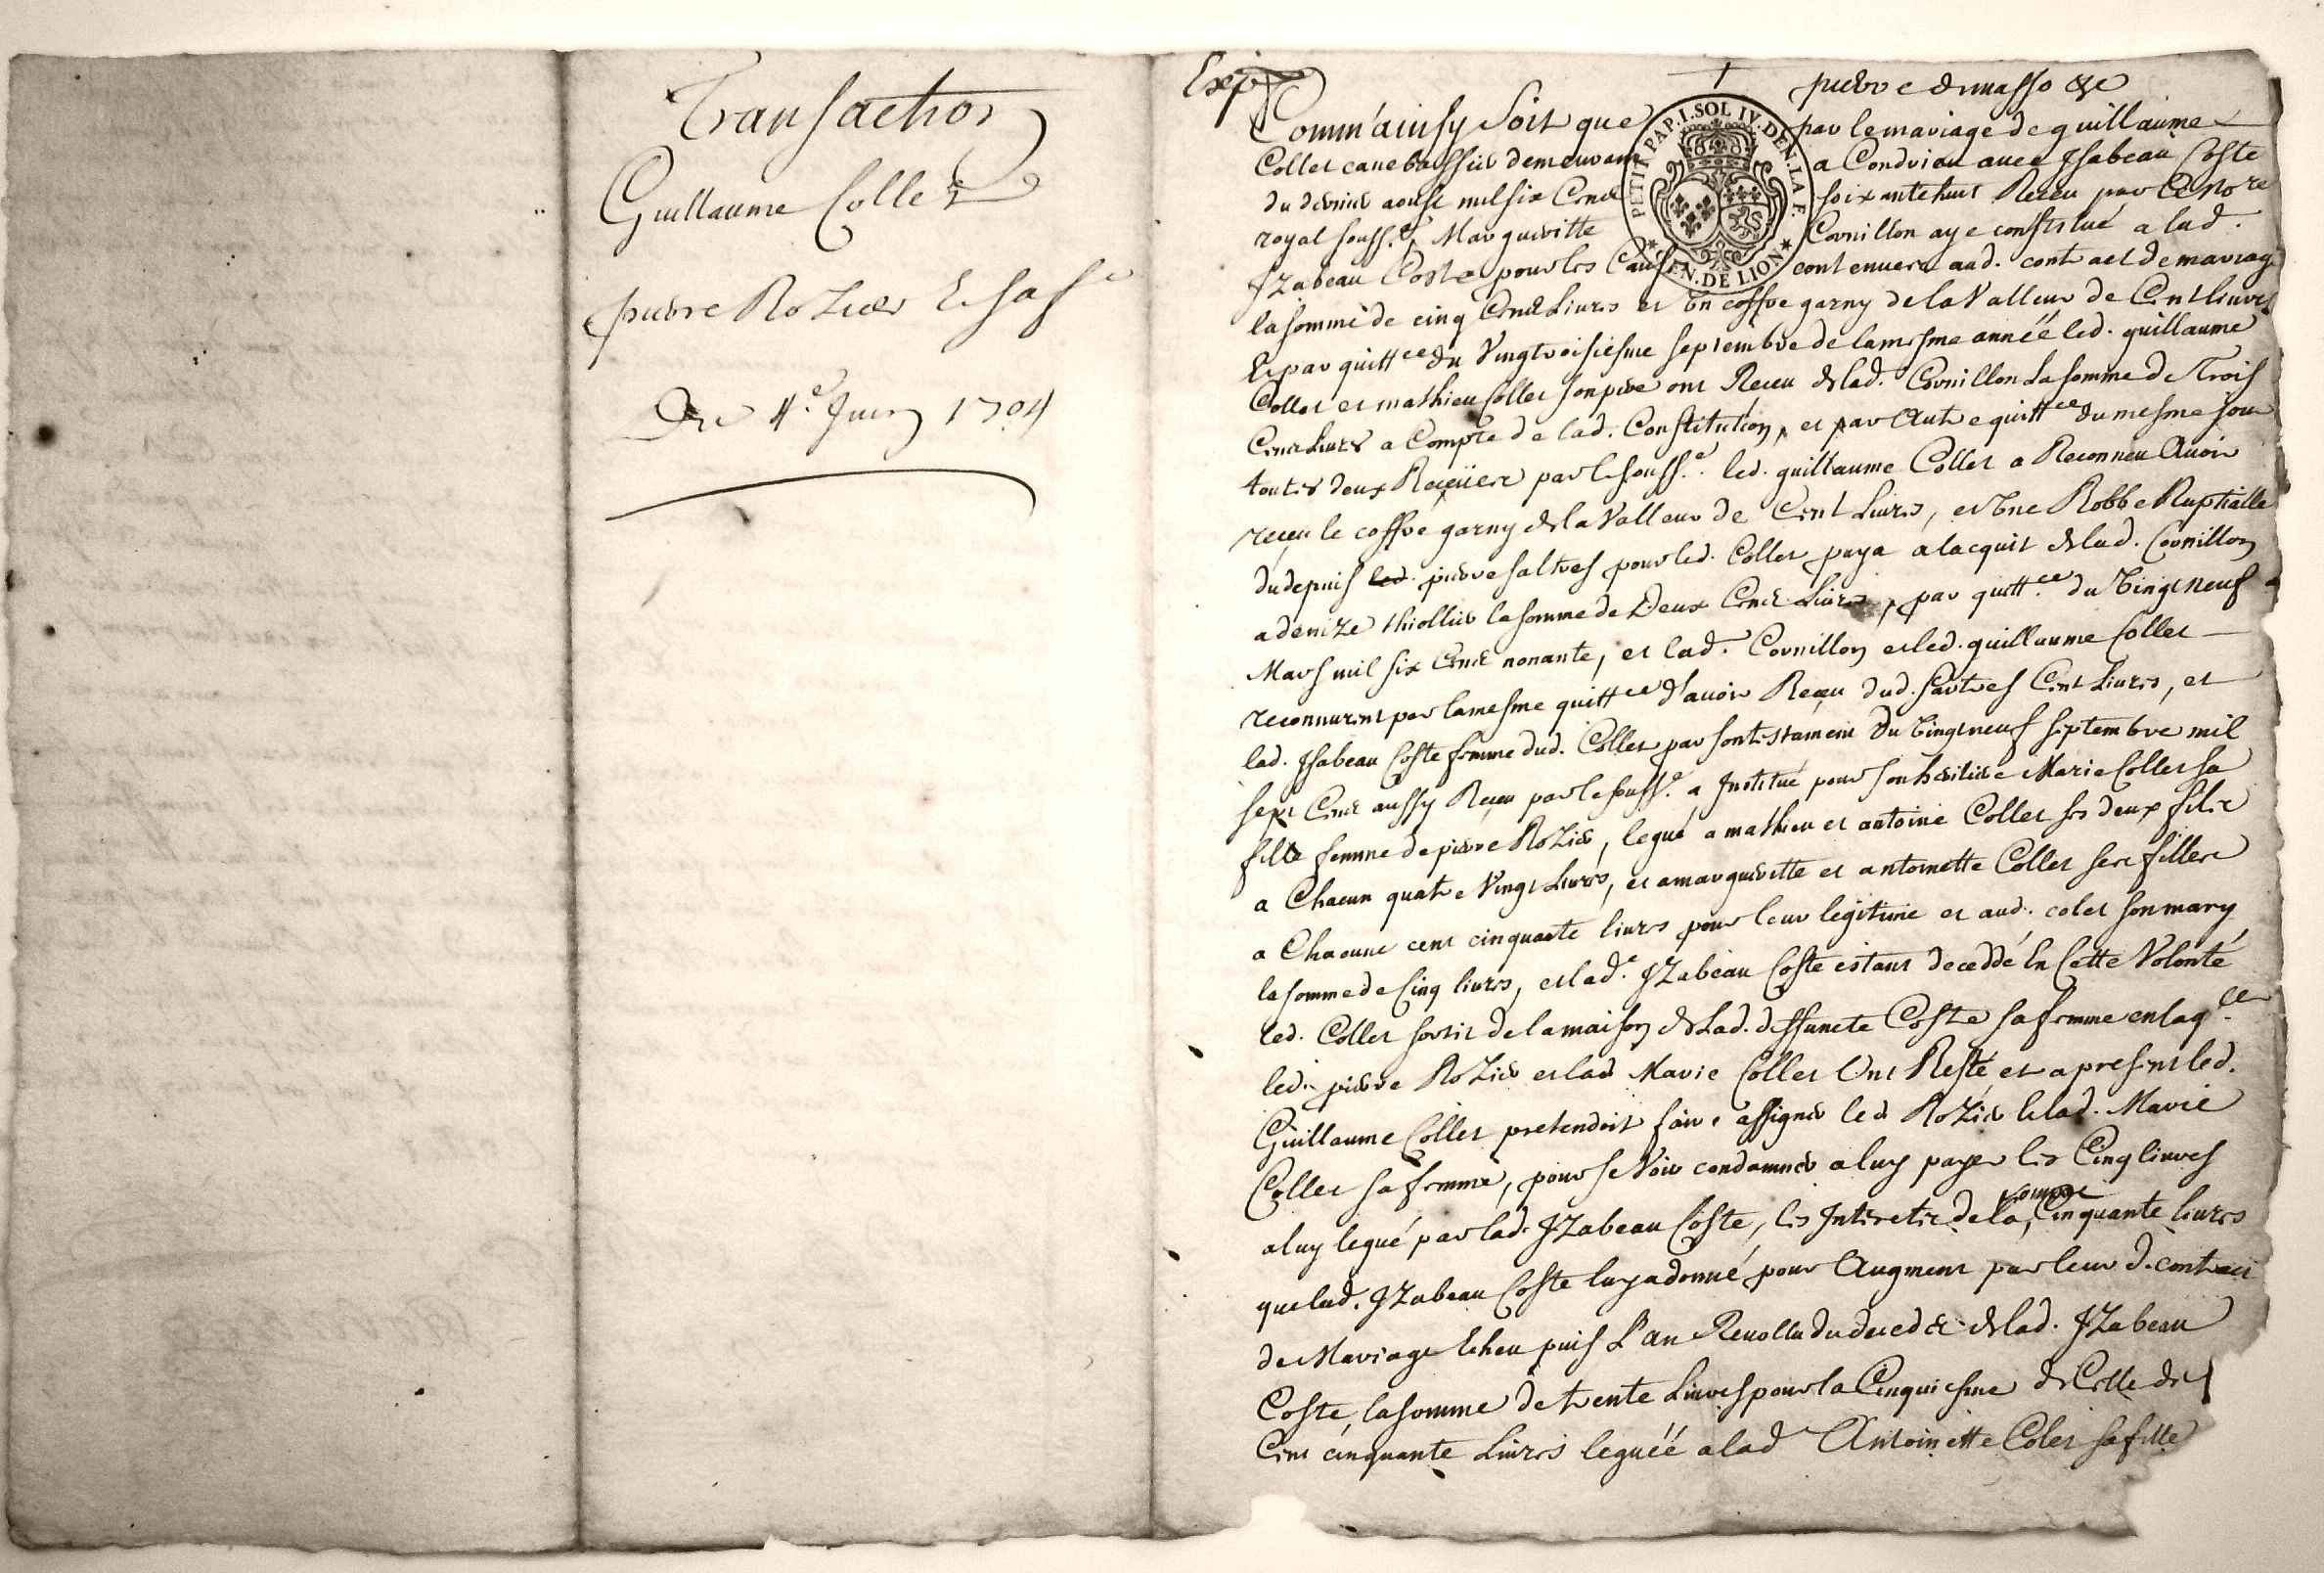 Transaction
Guillaume Collet
pierre Rozier & sa f.e
Du 4.e Juin 1704
Exp
pierre demasso &c
Comm'ainsy soit que par le mariage de guillaume
Collet canebassier demeurant a Condrieu avec Isabeau Coste
du dernier aoust mil six Cent soixante huit Receu par le no.re
royal souss.é, Margueritte Cornillon aye constitué a lad.
Izabeau Coste pour les Causes contenues aud. contract de mariage
la somme de cinq Cent Livres et un coffre garny de la Valleur de Cent livres
Et par quitt.ce du Vingtroisiesme septembre de la mesme année led. guillaume
Collet et mathieu Collet son pere ont Receu de lad. Cornillon La somme de Trois
Cent Livres a Compte de lad. Constitution, et par Autre quitt.ce du mesme jour
toutes deux Reçeües par le souss.é led. guillaume Collet a Reconneu Avoir
reçeu le coffre garny de la Valleur de Cent Livres, et Une Robbe Nuptialle
du depuis led. pierre saltres pour led. Collet paya a lacquit de lad. Cornillon
a denize thiollier la somme de Deux Cent Livres, par quitt.ce du Vingt neuf
Mars mil six Cent nonante, et lad. Cornillon et led. guillaume Collet
reconnurent par la mesme quitt.ce d'avoir Reçeu dud. sartres Cent Livres, et
lad. Isabeau Coste femme dud. Collet par son testament du Vingt neuf septembre mil
sept Cent aussy Reçeu par le souss.é a Institué pour son heritiere Marie Collet sa
fille femme de pierre Rozier, legué a mathieu et antoine Collet ses deux fils
a Chacun quatre Vingt Livres, et a margueritte et antoinette Collet ses filles
a Chacune cent cinquante livres pour leur legitime et aud. colet son mary
la somme de Cinq livres, et lad.e Izabeau Coste estant deceddé En Cette Volonté
led. Collet sortit de la maison de Lad. deffuncte Coste sa femme en laq.lle
led. pierre Rozier et lad. Marie Collet Ont Resté et a present led.
Guillaume Collet pretendoit faire assigner led Rozier & lad. Marie
Collet sa femme, pour se Voir condamner a luy payer les Cinq livres
a luy legué par lad. Izabeau Coste, les Interetz de la somme Cinquante livres
que lad. Izabeau Coste luy a donné pour Augment par leur d. contract
de Mariage Echeu puis L'an Revollu du decedz de lad. Izabeau
Coste, la somme de trente Livres pour la Cinquiesme de Celle de
Cent cinquante Livres leguéé a lad Antoinette Colet sa fille
PETIT.PAP.1.SOL IV.DEN.LA F.
GEN.DE LION